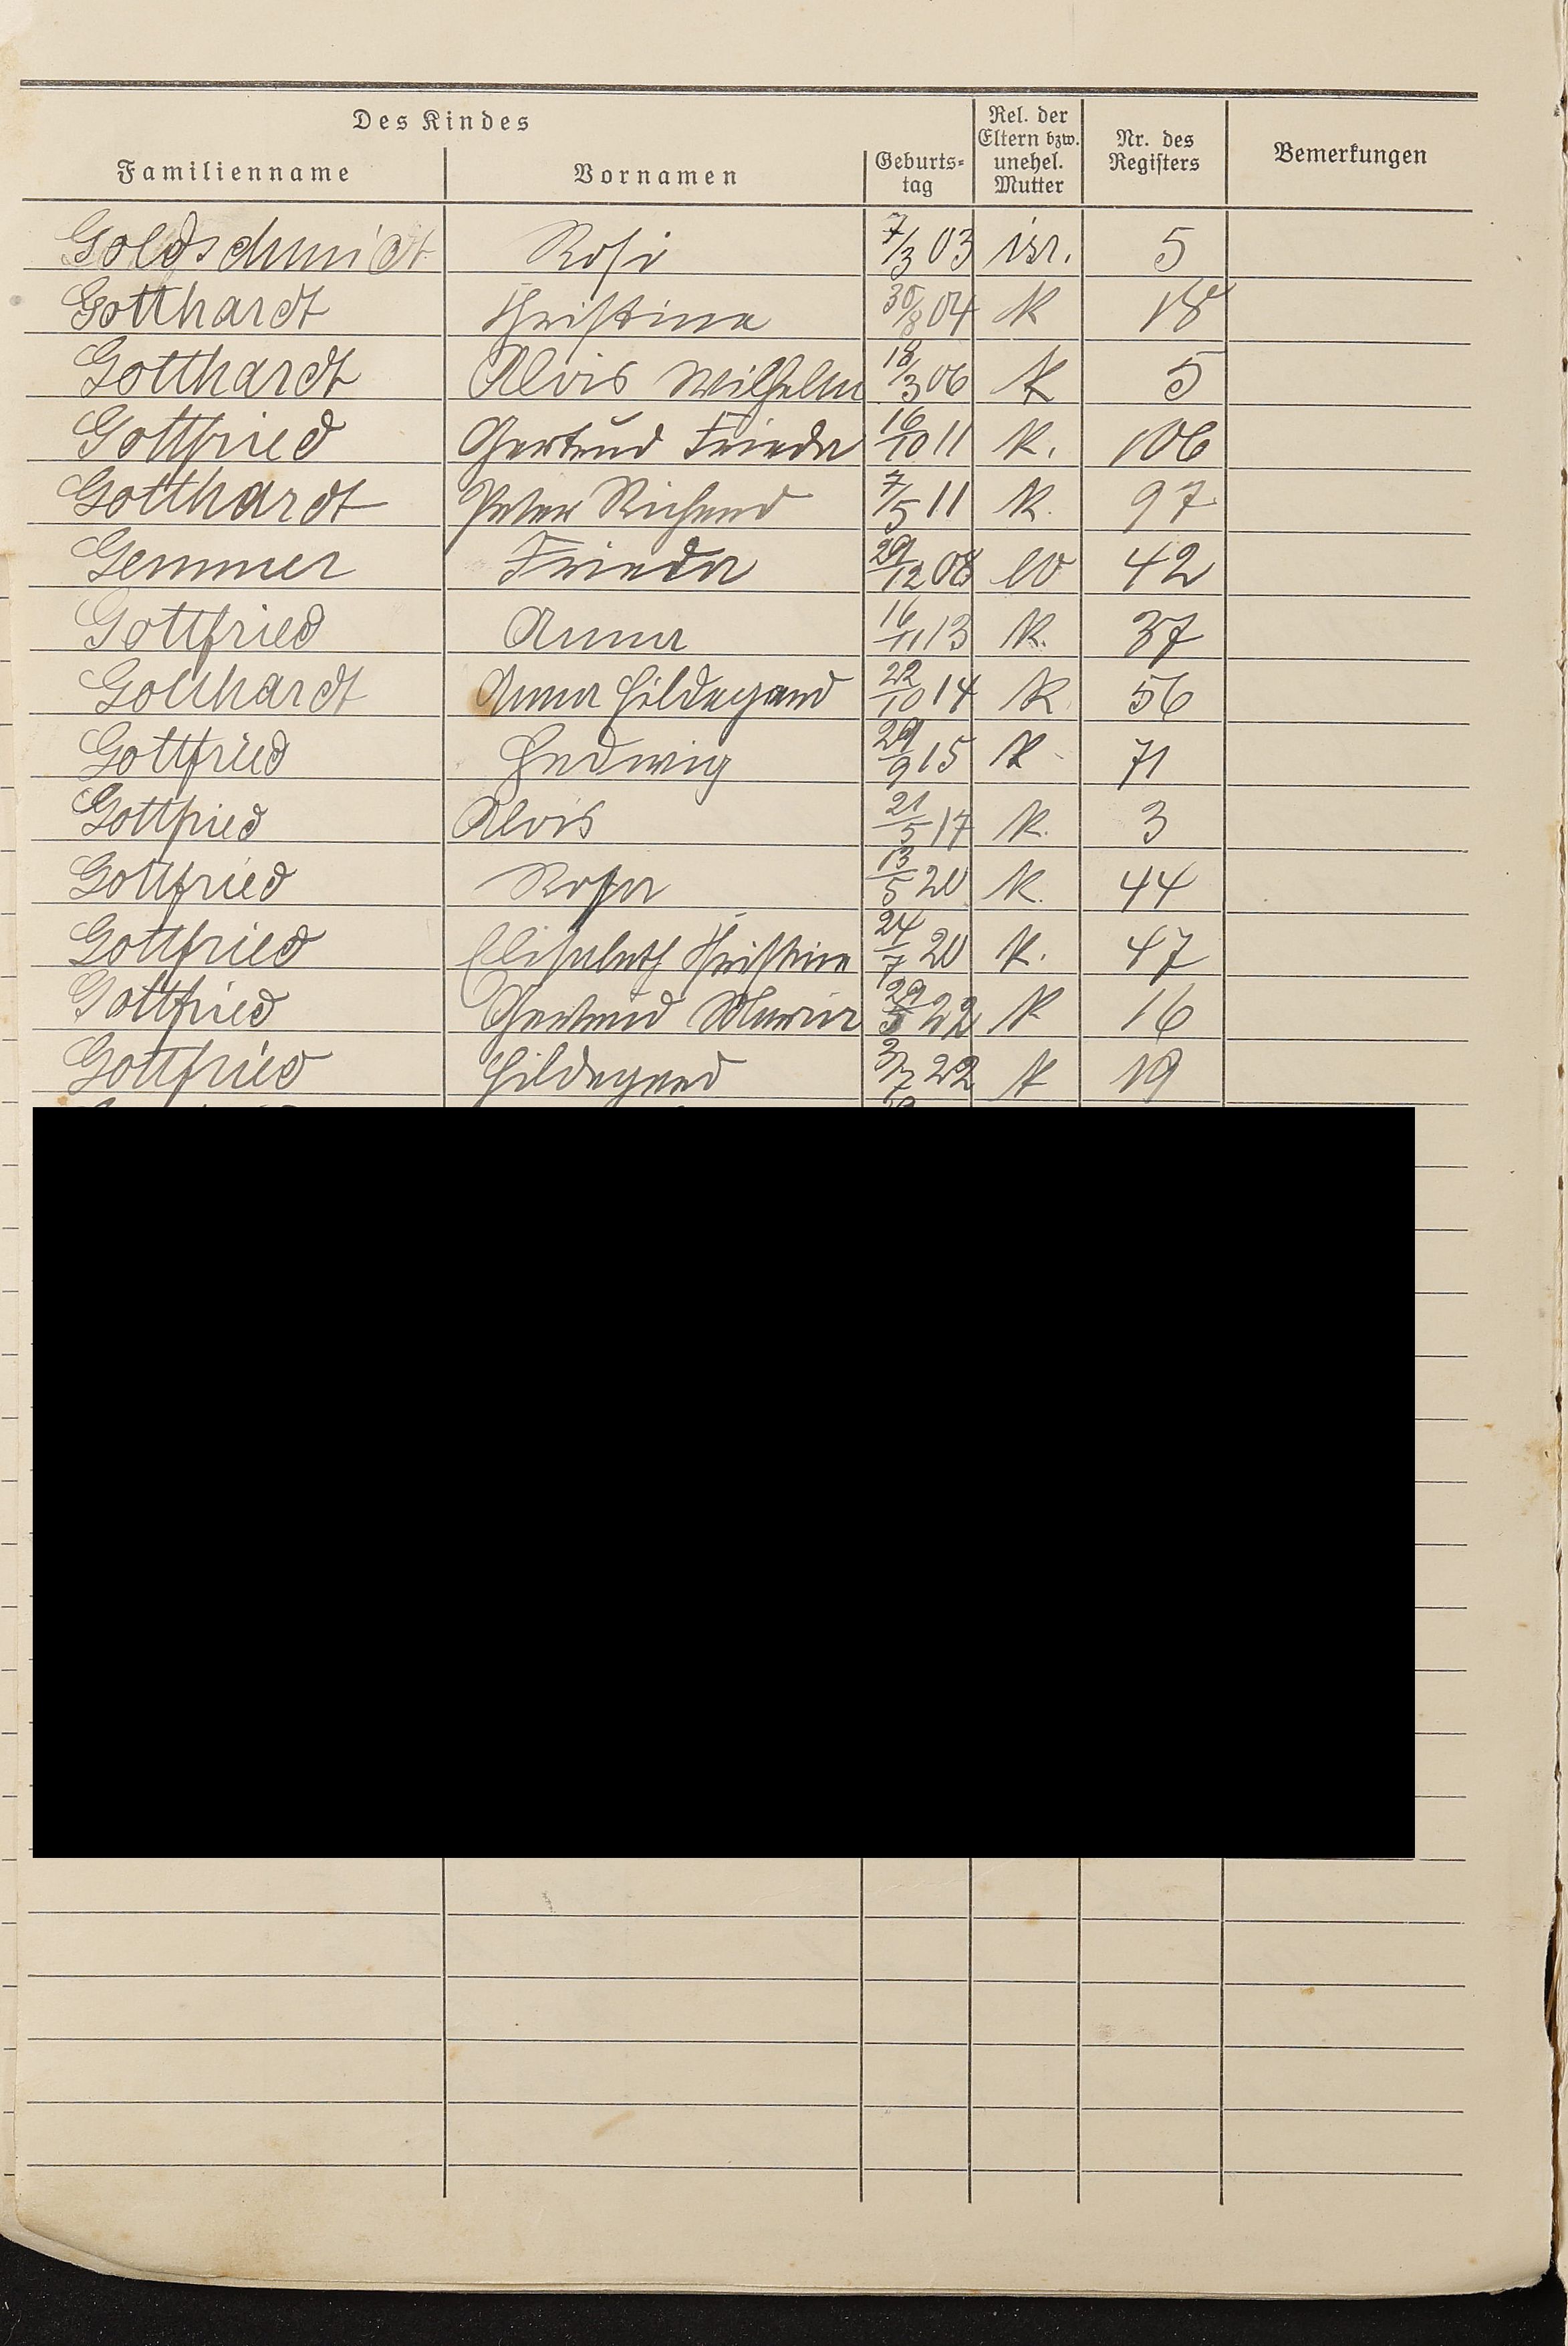 Des Kindes
Familienname Vornamen Geburts-tag Rel. der Eltern bzw. unehel. Mutter Nr. des Registers Bemerkungen
Goldschmidt Rosi 7/3 03 isr. 5
Gotthardt Christina 30/8 04 K 18
Gotthardt Alois Wilhelm 18/3 06 K 5
Gottfried Gertrud Frieda 16/10 11 K. 106
Gotthardt Peter Richard 7/5 11 K. 97
Gemmer Frieda 29/12 08 ev 42
Gottfried Anna 16/11 13 K. 37
Gotthardt Anna Hildegard 22/10 14 K. 56
Gottfried Hedwig 29/9 15 K 71
Gottfried Alois 21/5 17 K. 3
Gottfried Rosa 13/5 20 K. 44
Gottfried Elisabeth Christina 24/7 20 K. 47
Gottfried Gertrud Maria 22 K 16
Gottfried Hildegard 3/7 22 K 19